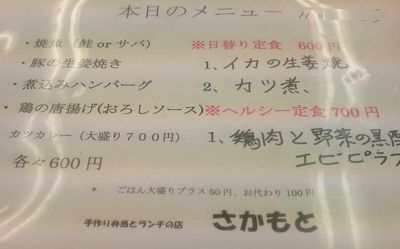 本日のメニュー
・焼魚（鮭 or サバ）
・豚の生姜焼き
・煮込みハンバーグ
・鶏の唐揚げ(おろしソース)
カツカレー（大盛り７００円）
各々600円
※日替り定食　600円
1、イカの生姜焼
2、カツ煮、
※ヘルシー定食700円
1、鶏肉と野菜の黒酢
エビピラフ
＊　ごはん大盛りプラス 50円、お代わり 100円
手作り弁当とランチの店　さかもと